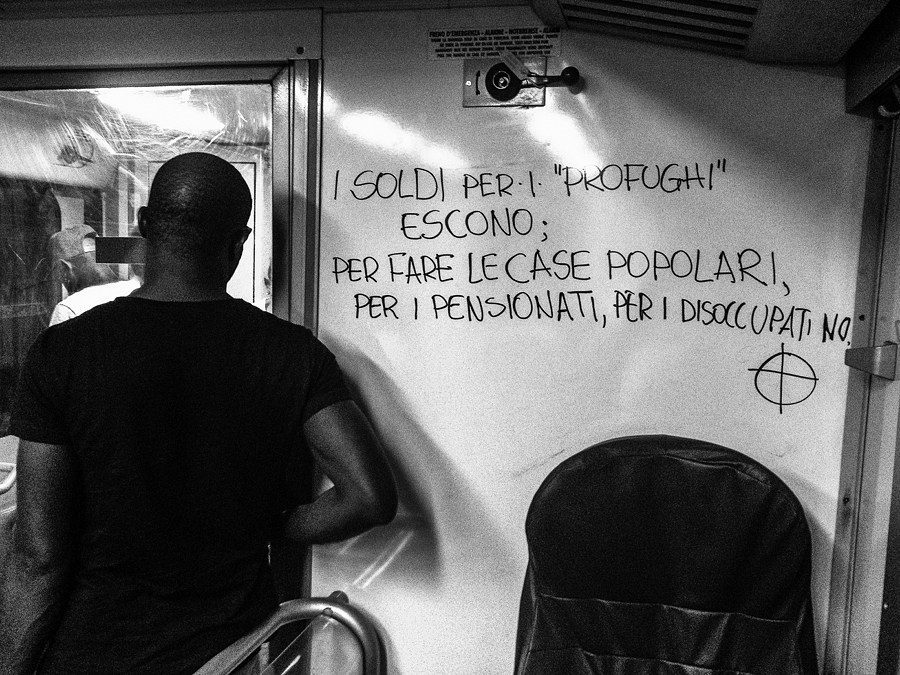 FRENO D'EMERGENZA - ALARME - NOTBREMSE - ALARM
I SOLDI PER·I· "PROFUGHI"
ESCONO;
PER FARE LE CASE POPOLARI,
PER I PENSIONATI, PER I DISOCCUPATI NO.